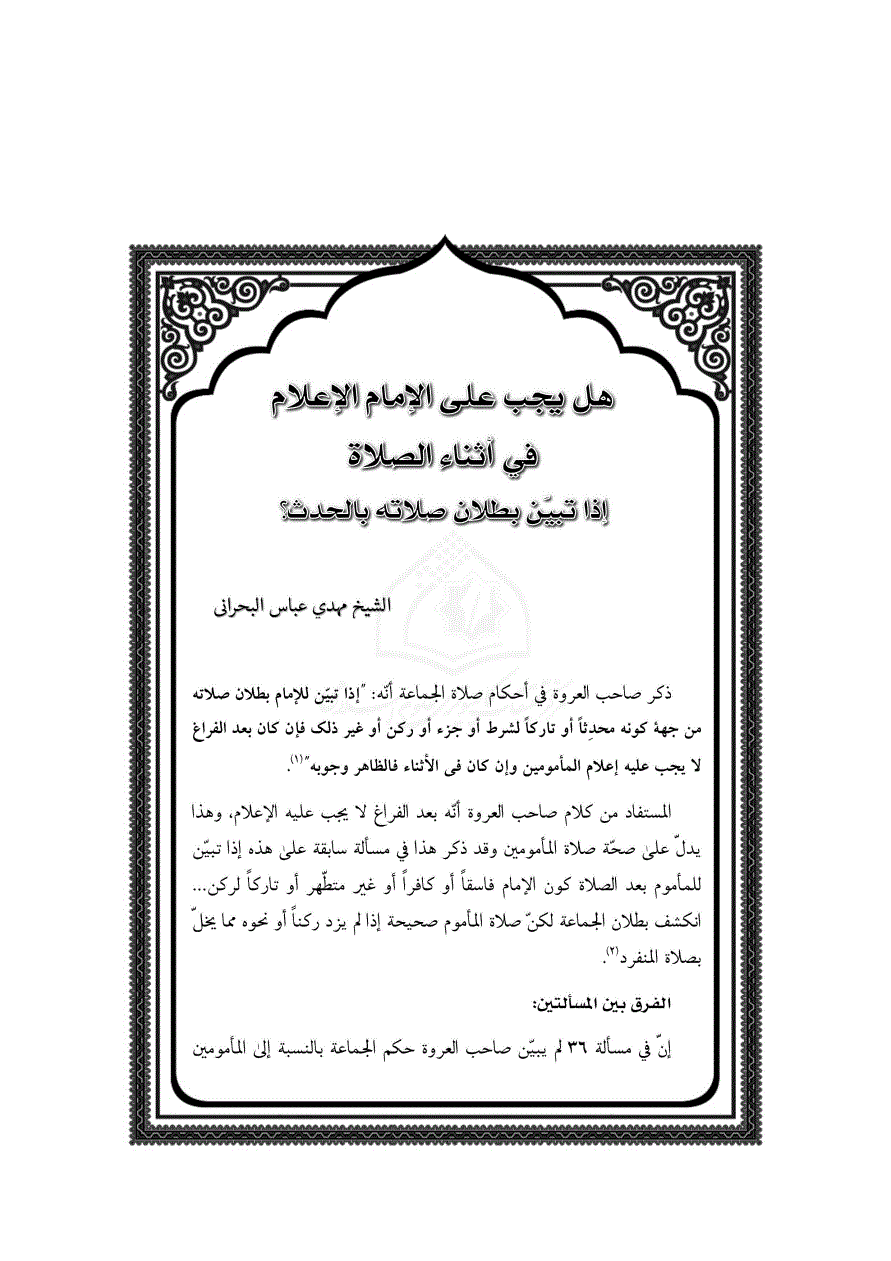 هل يجب على الإمام الإعلام
في أثناء الصلاة
إذا تبيّن بطلان صلاته بالحدث؟
الشيخ مهدي عباس البحرانی
ذكر صاحب العروة في أحكام صلاة الجماعة أنّه: "إذا تبيّن للإمام بطلان صلاته
من جهة كونه محدِثاً أو تاركاً لشرط أو جزء أو ركن أو غير ذلک فإن كان بعد الفراغ
لا يجب عليه إعلام المأمومين وإن كان فی الأثناء فالظاهر وجوبه"(١).
المستفاد من كلام صاحب العروة أنّه بعد الفراغ لا يجب عليه الإعلام، وهذا
يدلّ علىٰ صحّة صلاة المأمومين وقد ذكر هذا في مسألة سابقة علىٰ هذه إذا تبيّن
للمأموم بعد الصلاة كون الإمام فاسقاً أو كافراً أو غير متطّهر أو تاركاً لركن...
انكشف بطلان الجماعة لكنّ صلاة المأموم صحيحة إذا لم يزد ركناً أو نحوه مما يخلّ
بصلاة المنفرد(٢).
الفرق بين المسألتين:
إنّ في مسألة ٣٦ لم يبيّن صاحب العروة حكم الجماعة بالنسبة إلىٰ المأمومين